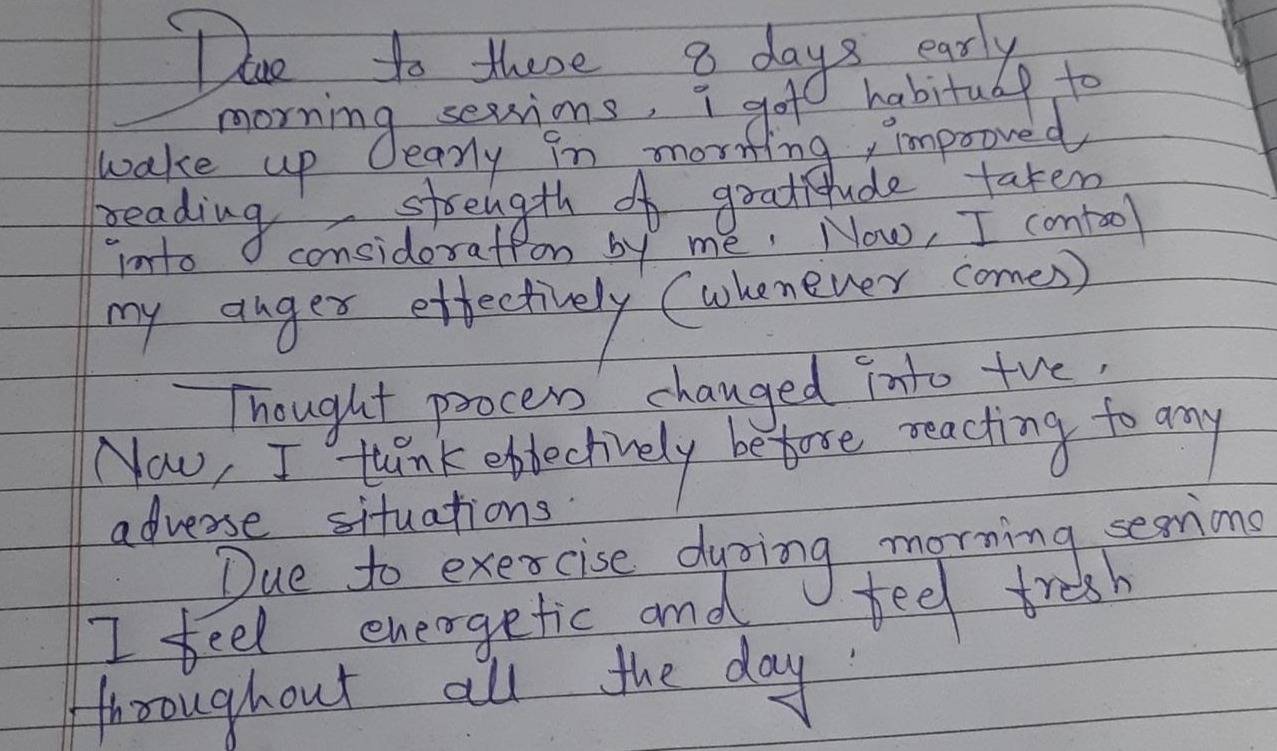 Due to these 8 days early
morning sessions, i got habitual to
wake up early in morning, improved
reading, strength of gratitude taken
into consideration by me. Now, I control
my anger effectively (whenever comes)
Thought process changed into +ve.
Now, I think effectively before reacting to any
adverse situations.
Due to exercise during morning sessions
I feel energetic and feel fresh
throughout all the day.